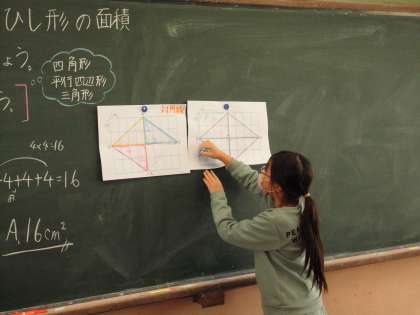 ひし形の面積
ょう。
四角形
平行四辺形
三角形
う。]
対角線
4×4=16
4+4+4=16
A.16cm²